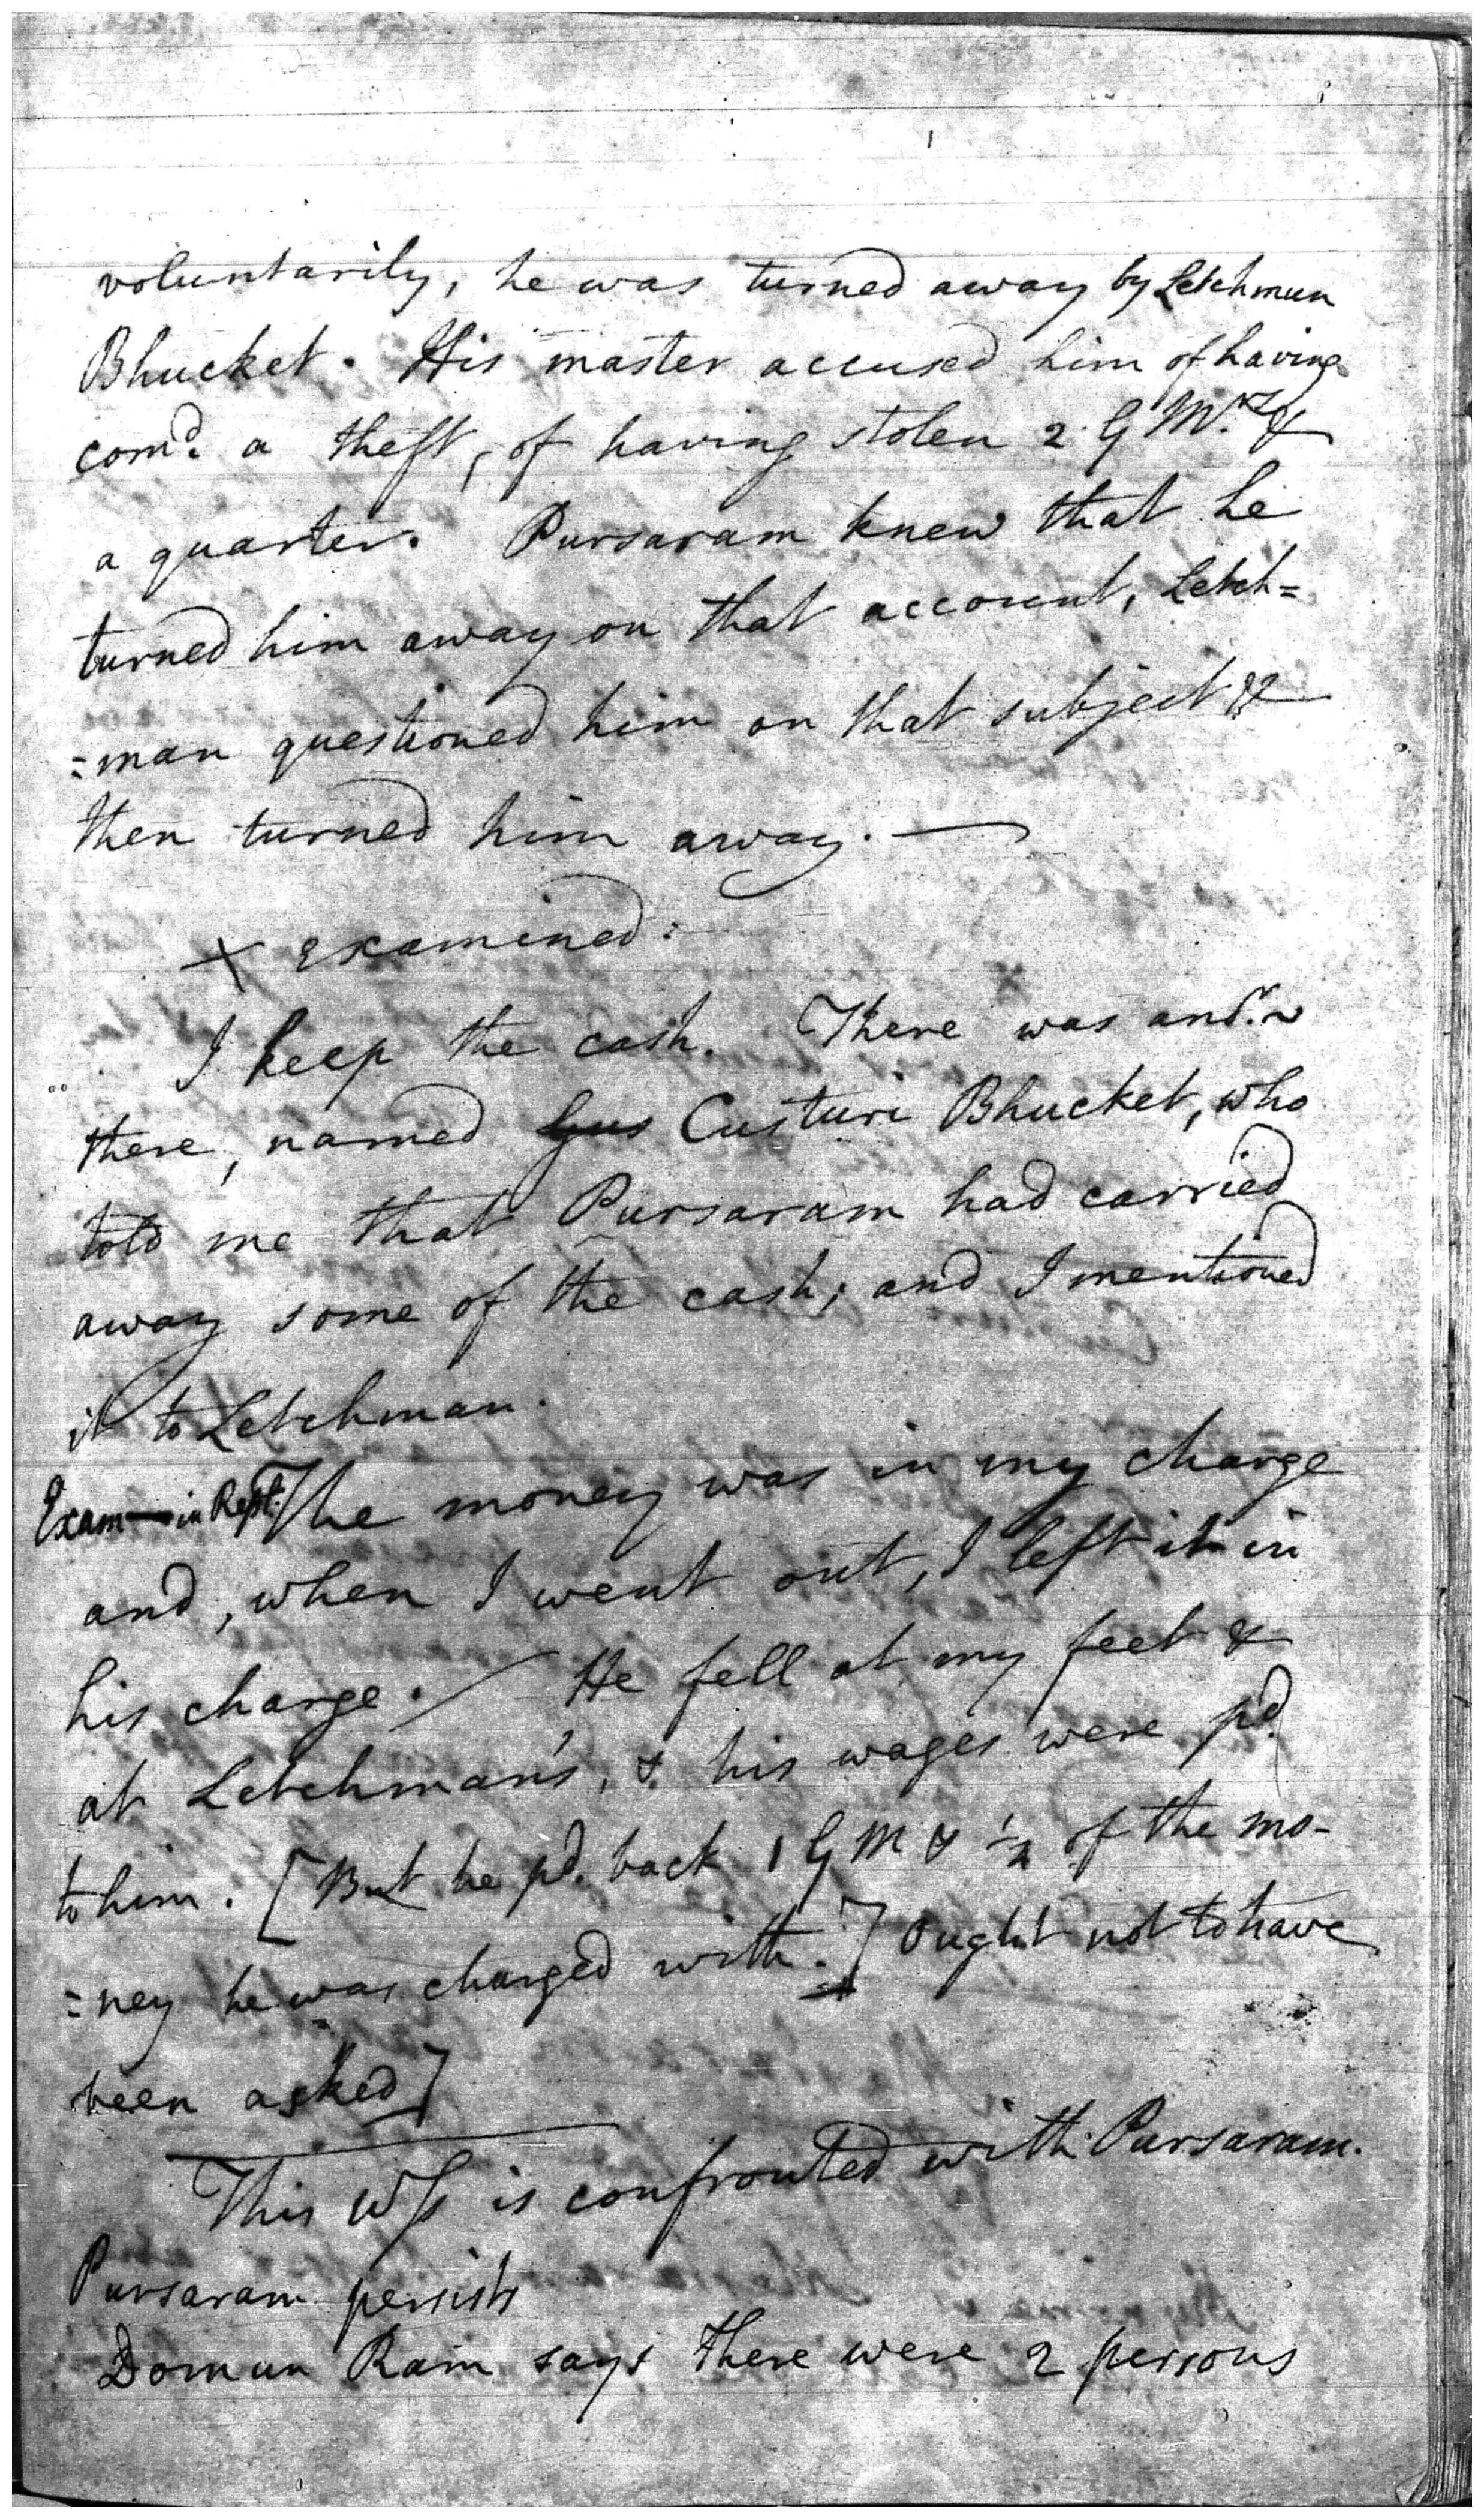 voluntarily, he was turned away by Letchmun
Bhucket. His master accused him of having
comd. a theft, of having stolen 2 G Mrs &
a quarter. Pursaram knew that he
turned him away on that account, Letch=
=man questioned him on that subject &
then turned him away. —
X examined:
I keep the cash. There was anor.
there, named Gus Custuri Bhucket, who
told me that Pursaram had carried
away some of the cash; and I mentioned
it to Letchman.
Exam—in Reply: The money was in my charge
and, when I went out, I left it in
his charge. / He fell at my feet &
at Letchman's, & his wages were pd.
to him. [But he pd. back 1 G M & ½ of the mo-
=ney he was charged with.] Ought not to have
been asked]
This W/s is confronted with Pursaram.
Pursaram persists
Domun Ram says there were 2 persons